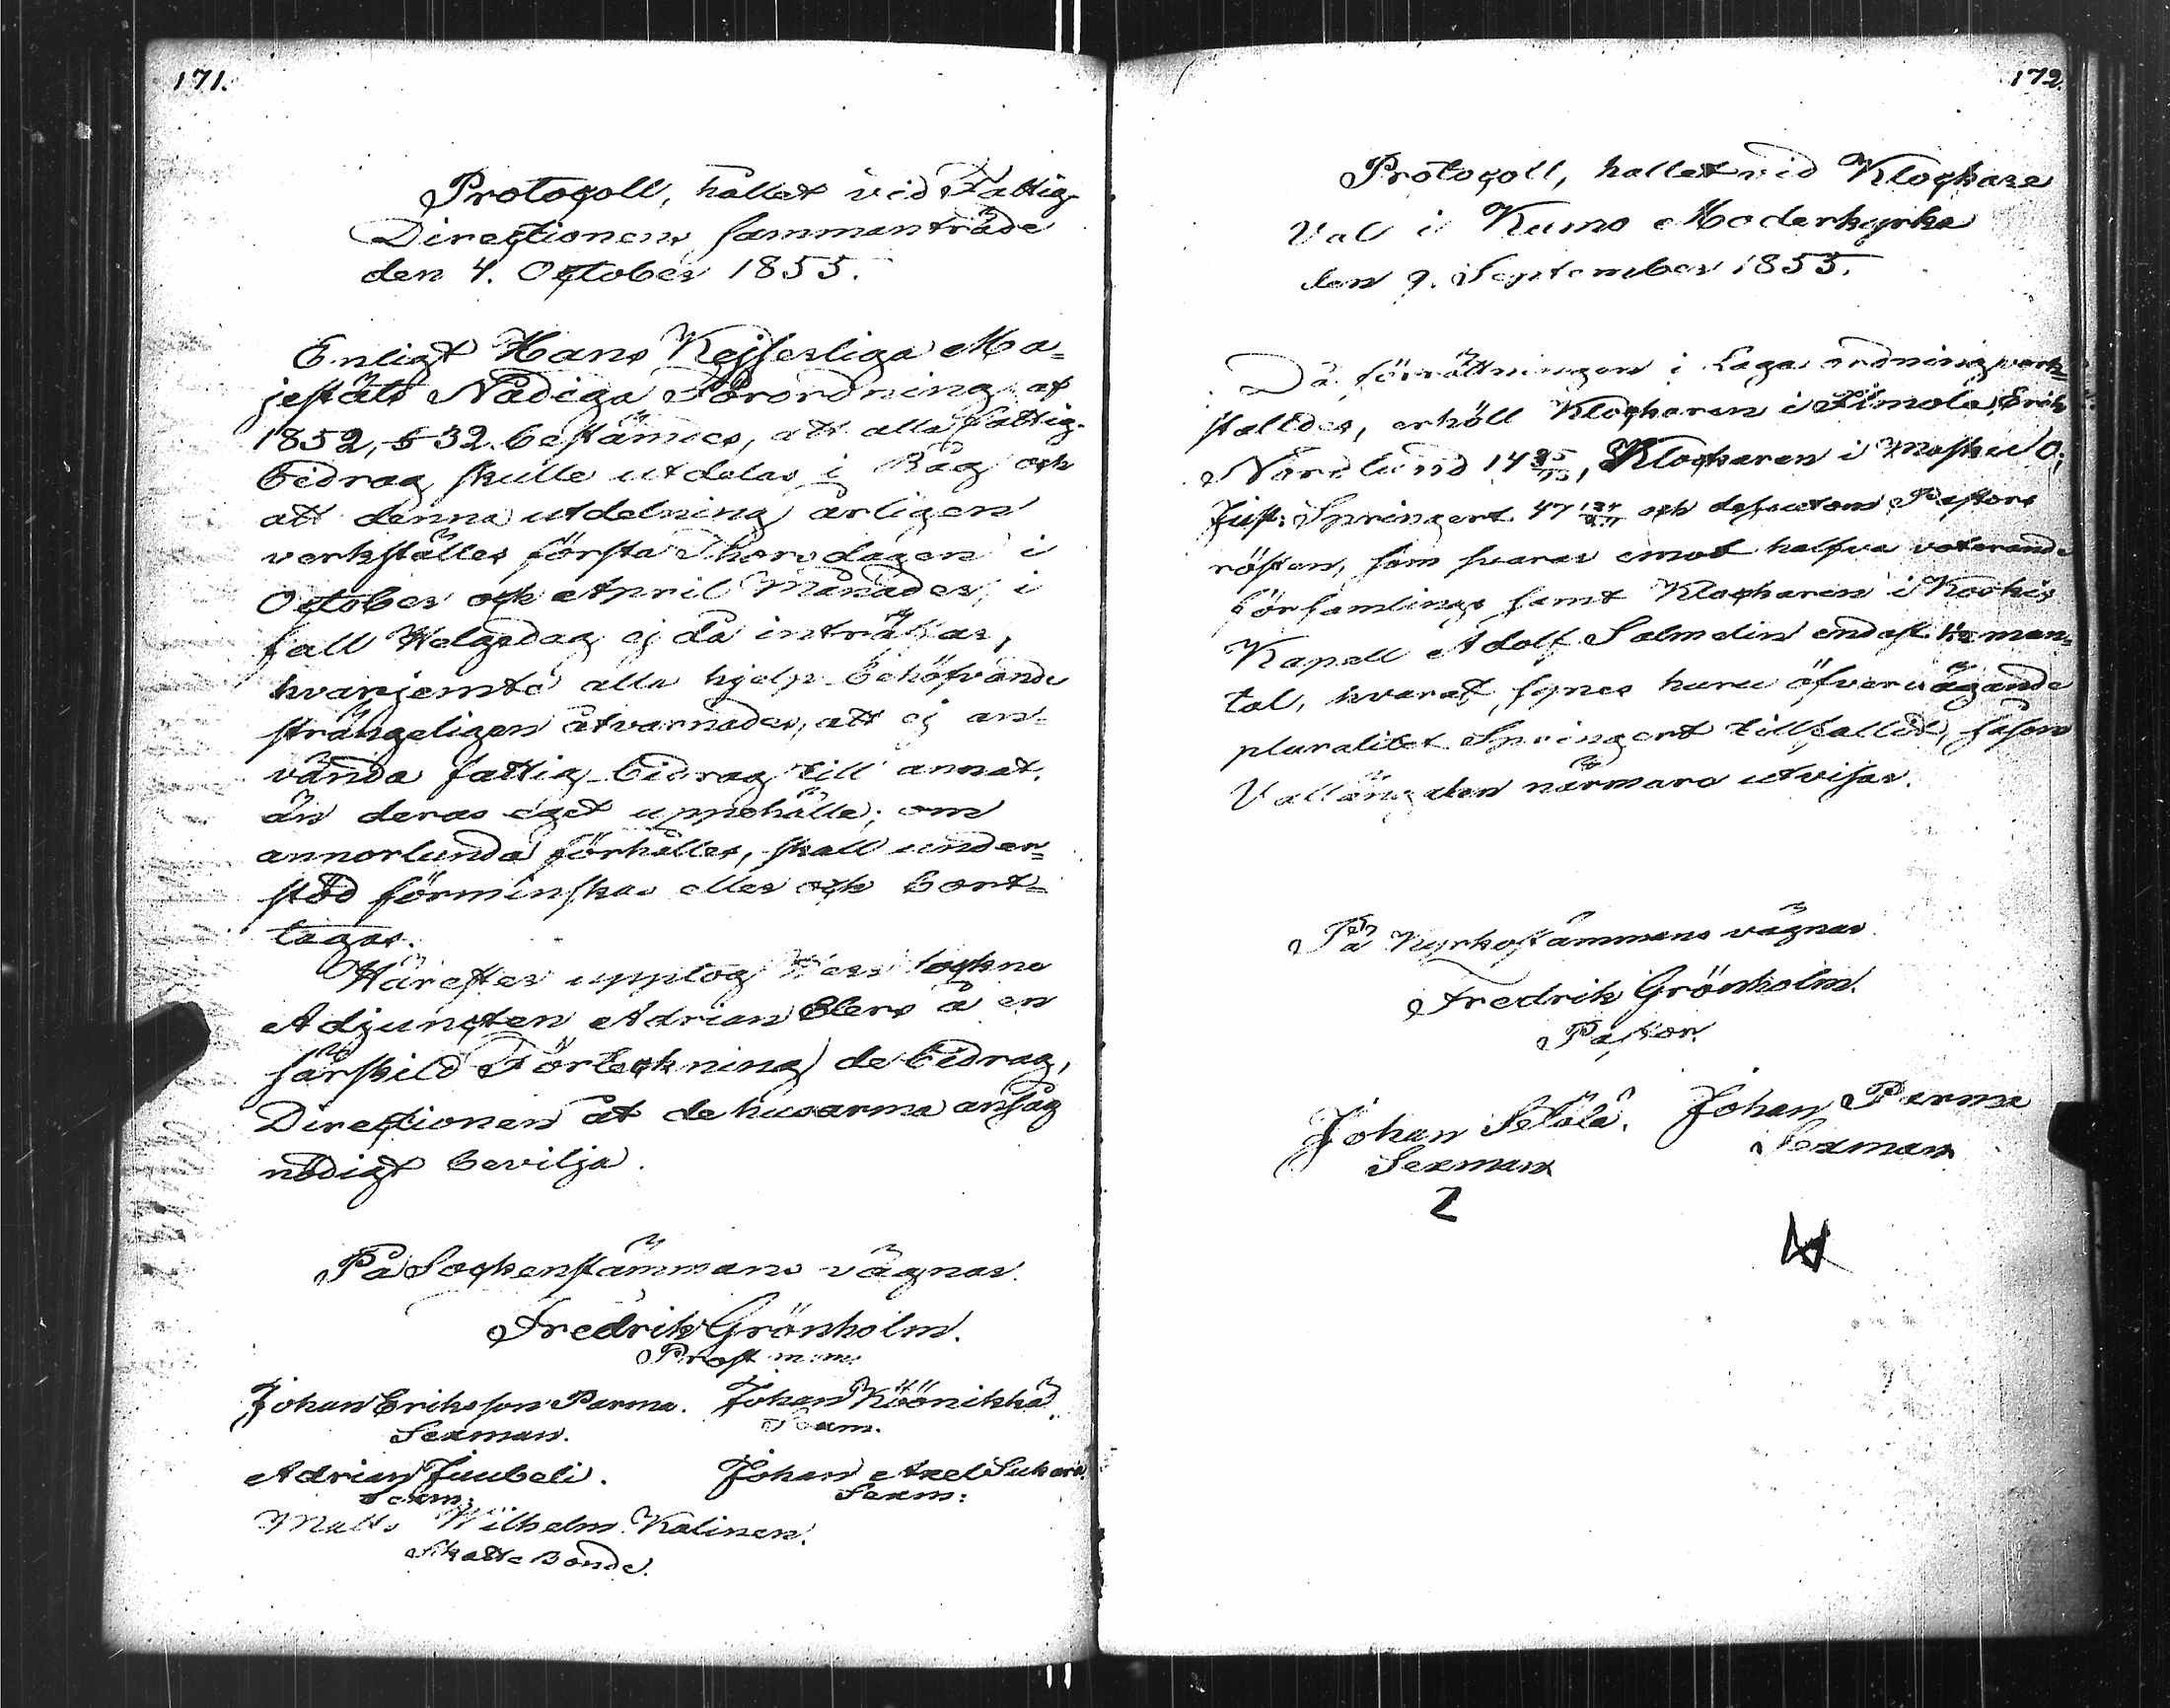 171.
Protocoll, hållet vid Fattig
Directionens sammanträde
den 4. October 1855.
Enligt Hans Kejserliga Ma=
jestäts Nådiga Förordning af
1852, § 32. bestämdes, att alla fattig-
bidrag skulle utdelas i Råg och
att denna utdelning årligen
verkställes första Thorsdagen i
October och April Månader, i
fall Helgedag ej då inträffar,
hvarjemte alla hjelp behöfvande
strängeligen åtvarnades, att ej an=
vända fattig-bidrag till annat,
än deras eget uppehälle; om
annorlunda förhålles, skall under=
stöd förminskas eller ock bort=
tagas.
Härefter upptog
Adjuncten Adrian å en
särskild Förteckning de bidrag,
Directionen åt de husarma ansåg
nödigt bevilja.
På Sockenstämmans vägnar.
Fredrik Grönholm.
Prost m:m:
Johan Eriksson Parma. Johan Köönikkä.
Sexman. Sexm.
Adrian Juubeli. Johan Axel
Sexm: Sexm:
Matts Wilhelm Kalinen.
Skatte Bonde.
172.
Protocoll, hållet vid Klockare
Val i Kumo Moderkyrka
den 9. September 1855.
Då förrättningen i Laga ordning verk=
stälides, erhöll Klockaren i Erik
Nordlund 14 Klockaren i
Just: Springert 47 och dessutom Pastors
rösten, som svarar emot halfva voterande
församlings samt Klockaren i
Kapell Adolf Salmelin endast man=
tal, hvaraf synes huru öfvervägande
pluralitet Springert tillfallit, såsom
Vallängden närmare utvisar.
På Kyrkostämmans vägnar
Fredrik Grönholm.
Pastor.
Johan Johan Parma
Sexman Sexman